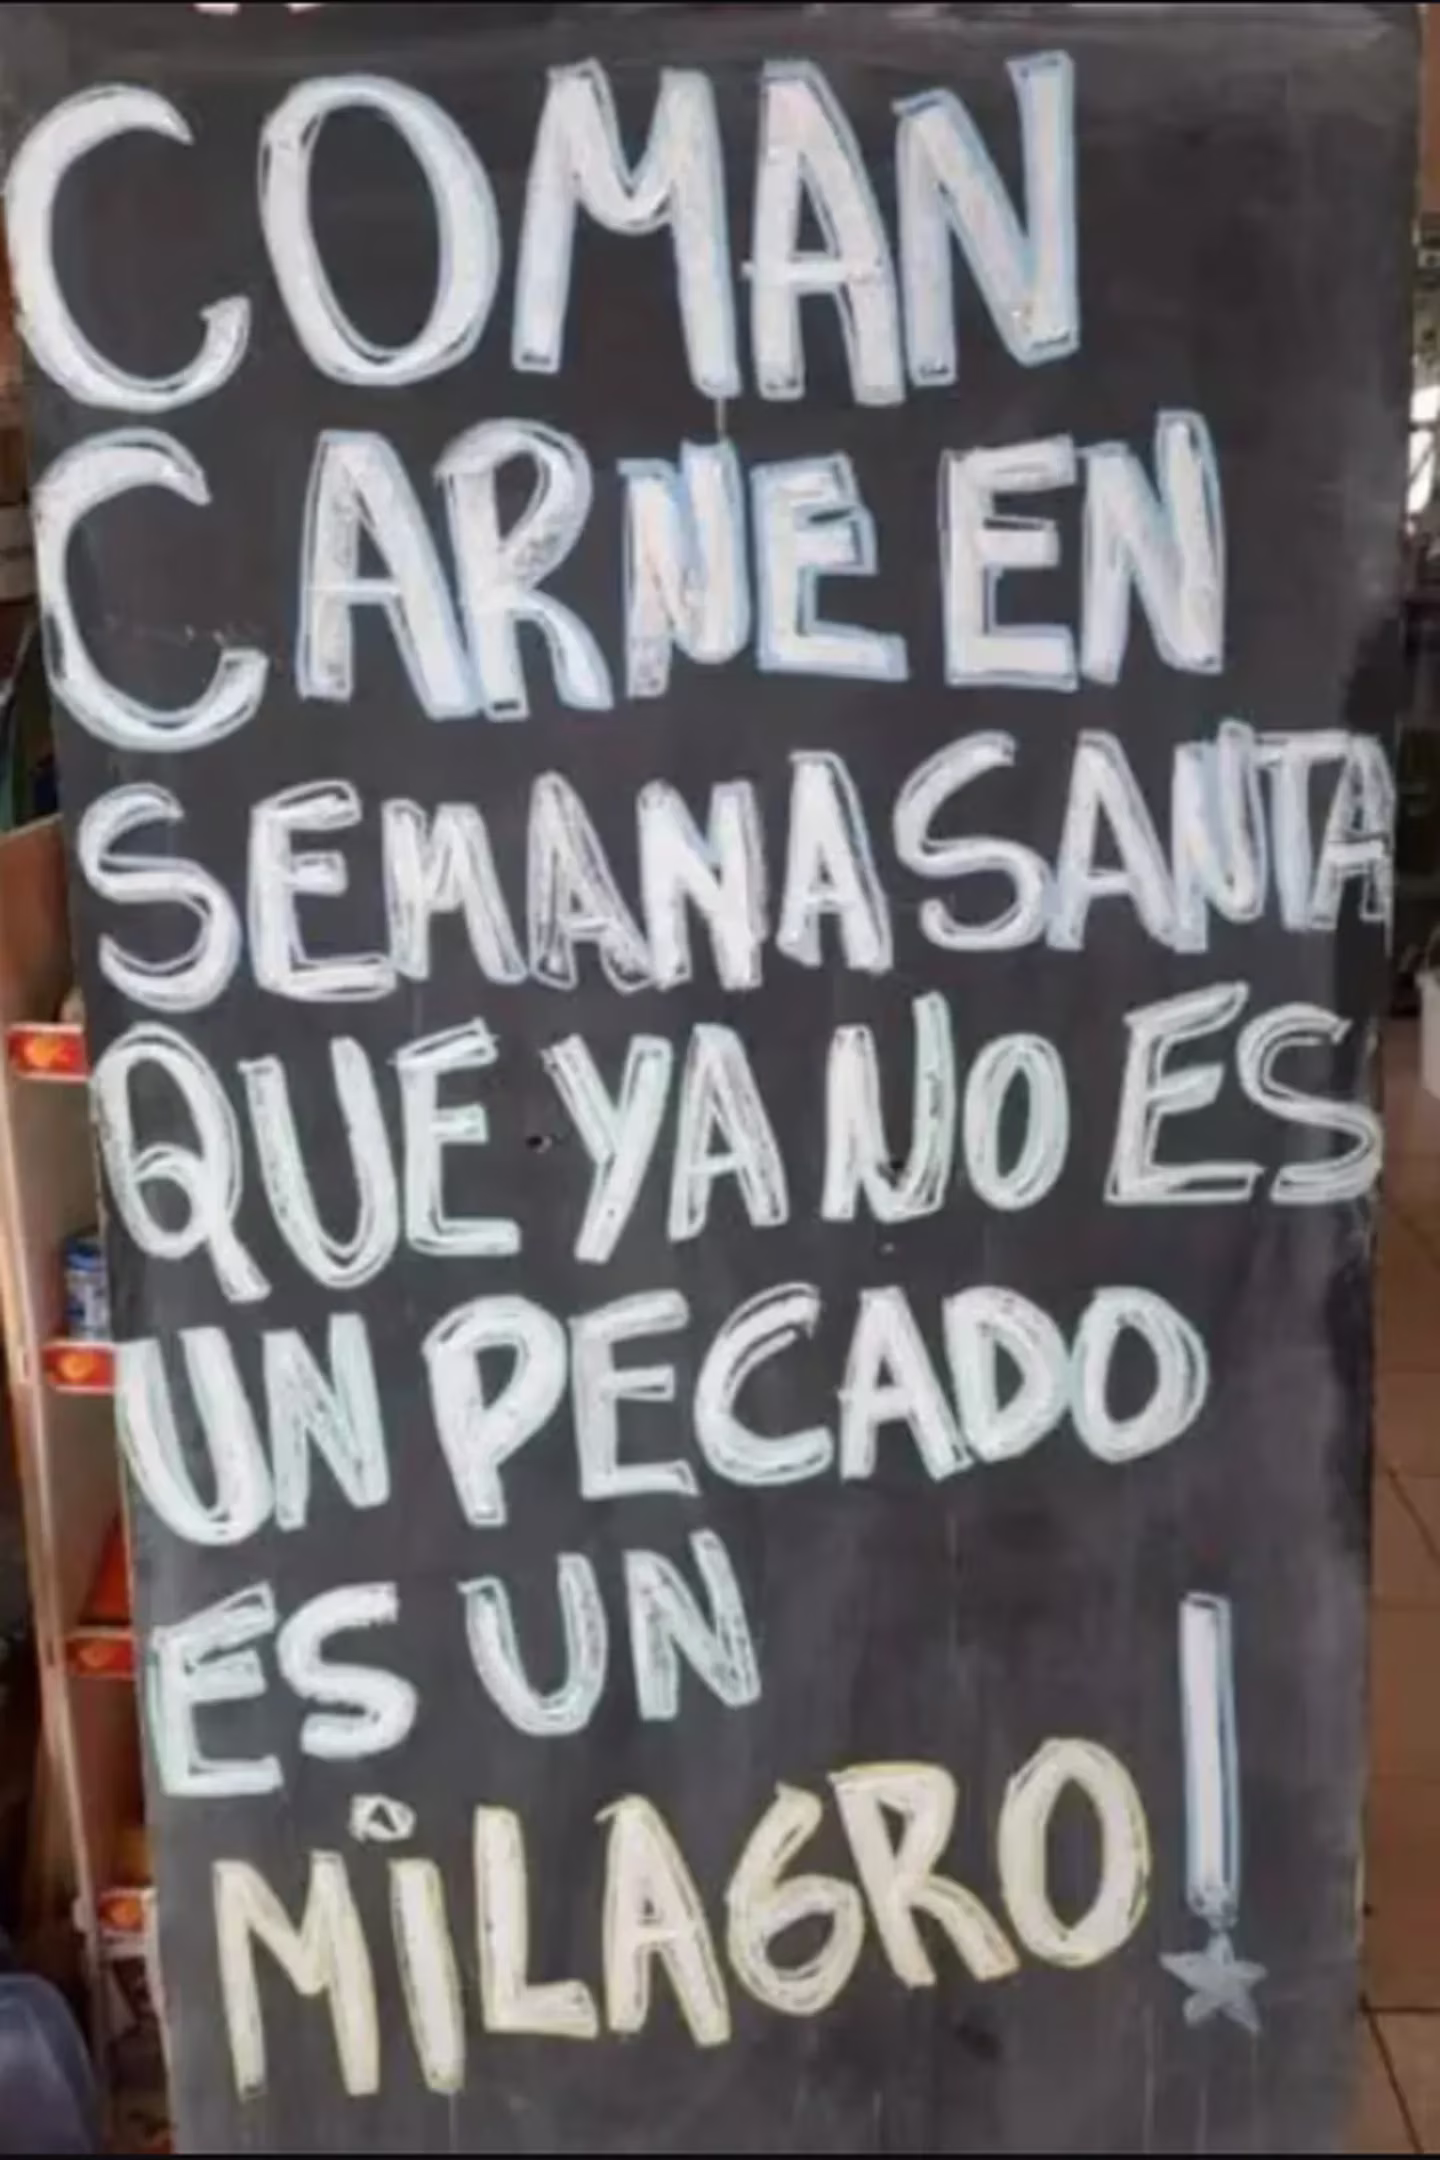 COMAN
CARNE EN
SEMANA SANTA
QUE YA NO ES
UN PECADO
ES UN
MiLAGRO!